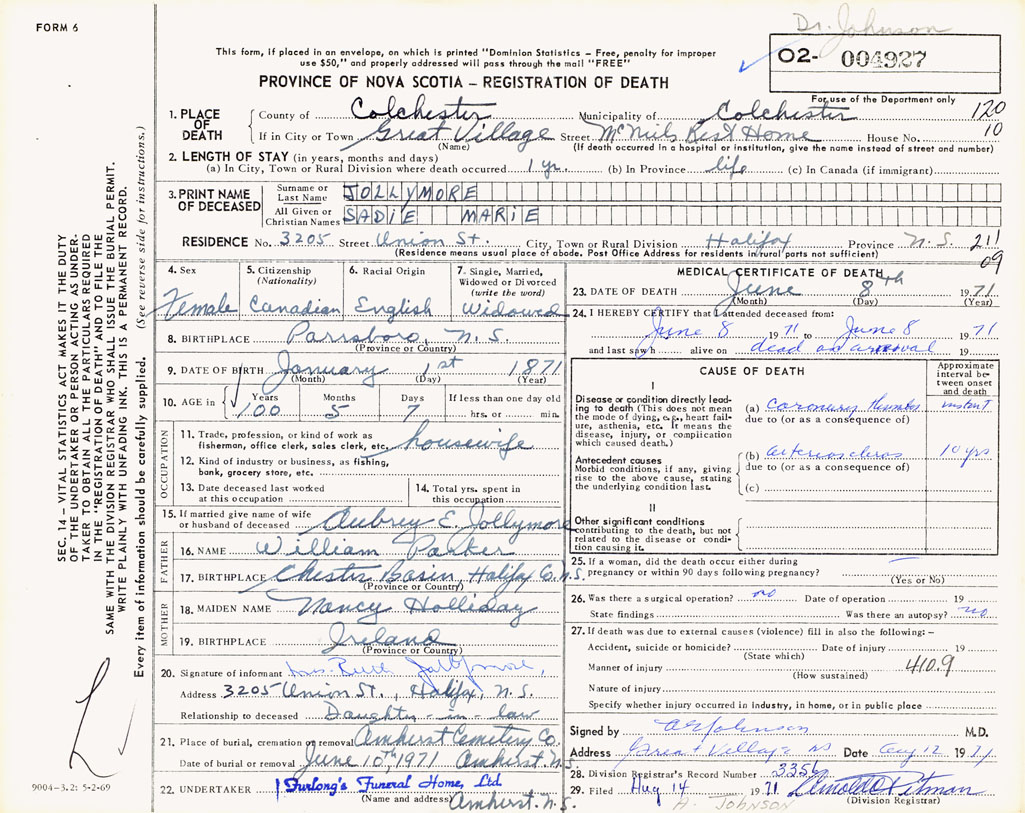 Dr. Johnson
FORM 6
This form, if placed in an envelope, on which is printed "Dominion Statistics – Free, penalty for improper
use $50," and properly addressed will pass through the mail "FREE"
O2- 004927
PROVINCE OF NOVA SCOTIA – REGISTRATION OF DEATH
For use of the Department only
1. PLACE OF DEATH
County of Colchester Municipality of Colchester 120
If in City or Town Great Village Street McNeils Rest Home House No. 10
(Name) (If death occurred in a hospital or institution, give the name instead of street and number)
2. LENGTH OF STAY (in years, months and days)
(a) In City, Town or Rural Division where death occurred 1 yr. (b) In Province life (c) In Canada (if immigrant)
3. PRINT NAME OF DECEASED
Surname or Last Name JOLLYMORE
All Given or Christian Names SADIE MARIE
RESIDENCE No. 3205 Street Union St. City, Town or Rural Division Halifax Province N.S. 211
(Residence means usual place of abode. Post Office Address for residents in rural parts not sufficient) 09
4. Sex
Female
5. Citizenship (Nationality)
Canadian
6. Racial Origin
English
7. Single, Married, Widowed or Divorced (write the word)
Widowed
8. BIRTHPLACE Parrsboro, N.S.
(Province or Country)
9. DATE OF BIRTH January 1st 1871
(Month) (Day) (Year)
10. AGE in Years Months Days If less than one day old
100 5 7 hrs. or min.
OCCUPATION
11. Trade, profession, or kind of work as
fisherman, office clerk, sales clerk, etc. housewife
12. Kind of industry or business, as fishing,
bank, grocery store, etc.
13. Date deceased last worked
at this occupation
14. Total yrs. spent in
this occupation
15. If married give name of wife
or husband of deceased Aubrey E. Jollymore
FATHER
16. NAME William Parker
17. BIRTHPLACE Chester Basin, Halifax Co. N.S.
(Province or Country)
MOTHER
18. MAIDEN NAME Nancy Holliday
19. BIRTHPLACE Ireland
(Province or Country)
20. Signature of informant Mrs. Ruth Jollymore,
Address 3205 Union St., Halifax, N.S.
Relationship to deceased Daughter-in-law
21. Place of burial, cremation or removal Amherst Cemetery Co.
Date of burial or removal June 10th, 1971 Amherst, N.S.
22. UNDERTAKER Furlong's Funeral Home, Ltd.
(Name and address) Amherst, N.S.
MEDICAL CERTIFICATE OF DEATH
23. DATE OF DEATH June 8th 1971
(Month) (Day) (Year)
24. I HEREBY CERTIFY that I attended deceased from:
June 8 1971 to June 8 1971
and last saw h alive on dead on arrival 19
CAUSE OF DEATH
Approximate interval between onset and death
I
Disease or condition directly leading to death (This does not mean the mode of dying, e.g., heart failure, asthenia, etc. It means the disease, injury, or complication which caused death.)
(a) coronary thrombos instant
due to (or as a consequence of)
Antecedent causes
Morbid conditions, if any, giving rise to the above cause, stating the underlying condition last.
(b) arterioscleros 10 yrs
due to (or as a consequence of)
(c)
II
Other significant conditions
contributing to the death, but not related to the disease or condition causing it.
25. If a woman, did the death occur either during
pregnancy or within 90 days following pregnancy?
(Yes or No)
26. Was there a surgical operation? no Date of operation 19
State findings Was there an autopsy? no
27. If death was due to external causes (violence) fill in also the following: –
Accident, suicide or homicide? Date of injury 19
(State which)
Manner of injury 410.9
(How sustained)
Nature of injury
Specify whether injury occurred in industry, in home, or in public place
Signed by Johnson M.D.
Address Great Village NS Date Aug 12 1971
28. Division Registrar's Record Number 3356
29. Filed Aug 14 1971 Pitman
(Division Registrar)
A. JOHNSON
SEC. 14 – VITAL STATISTICS ACT MAKES IT THE DUTY
OF THE UNDERTAKER OR PERSON ACTING AS UNDER-
TAKER TO OBTAIN ALL THE PARTICULARS REQUIRED
IN THE "REGISTRATION OF DEATH" AND TO FILE THE
SAME WITH THE DIVISION REGISTRAR WHO SHALL ISSUE THE BURIAL PERMIT.
WRITE PLAINLY WITH UNFADING INK. THIS IS A PERMANENT RECORD.
Every item of information should be carefully supplied. (See reverse side for instructions.)
9004-3.2: 5-2-69